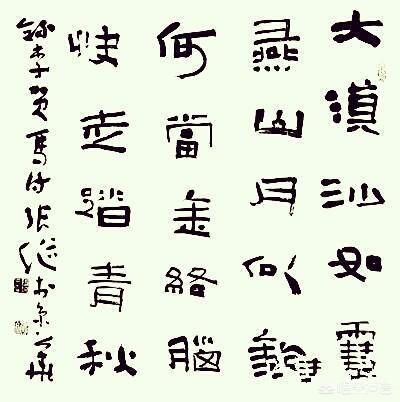 大漠沙如雪
燕山月似鉤
何當金絡腦
快走踏青秋
錄李賀馬诗张继於京華